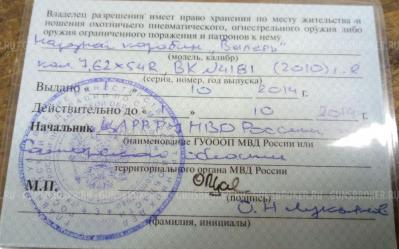 Владелец разрешения имеет право хранения по месту жительства и
ношения охотничьего пневматического, огнестрельного оружия либо
оружия ограниченного поражения и патронов к нему
Нарезной карабин "Вепрь"
(модель, калибр)
кал. 7,62х54R, ВК №4181 (2010)
(серия, номер, год выпуска)
Выдано « » 10 2014 г.
Действительно до « » 10 2019 г.
Начальник МВД России
(наименование ГУОООП МВД России или
области
территориального органа МВД России)
М.П.
(подпись)
О.Н.
(фамилия, инициалы)